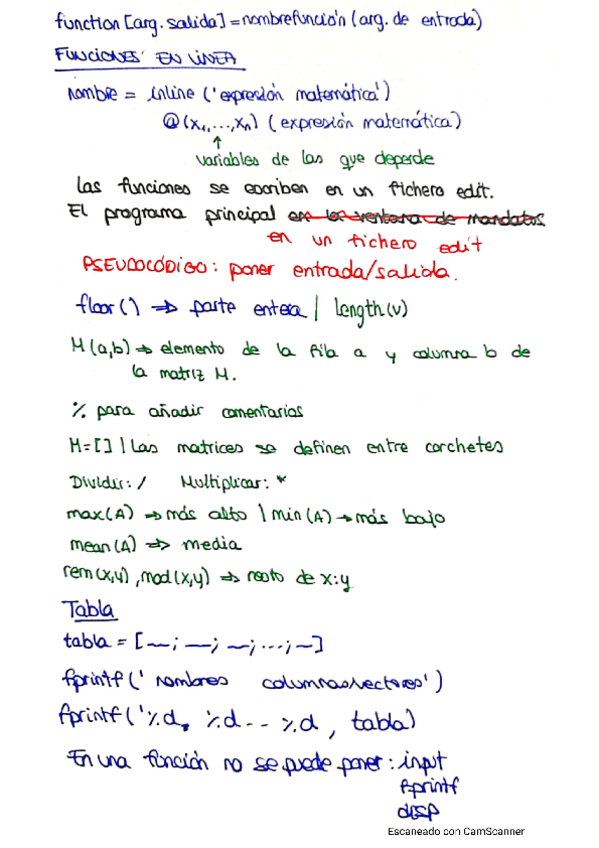 function [arg. salida] = nombrefunción (arg. de entrada)
FUNCIONES EN LÍNEA
nombre = inline ('expresión matemática')
@(x1,...,xn) (expresión matemática)
↑
variables de las que depende
Las funciones se escriben en un fichero edit.
El programa principal en la ventana de mandatos
en un fichero edit
PSEUDOCÓDIGO: poner entrada/salida.
floor() ⇒ parte entera | length(v)
M(a,b) → elemento de la fila a y columna b de
la matriz M.
% para añadir comentarios
M=[] | Las matrices se definen entre corchetes
Dividir: / Multiplicar: *
max(A) → más alto | min(A) → más bajo
mean(A) ⇒ media
rem(x,y), mod(x,y) ⇒ resto de x:y
Tabla
tabla = [—; —; —; ...; —]
fprintf (' nombres columnas/vectores')
fprintf ('%d, %d -- %d, tabla)
En una función no se puede poner: input
fprintf
disp
Escaneado con CamScanner